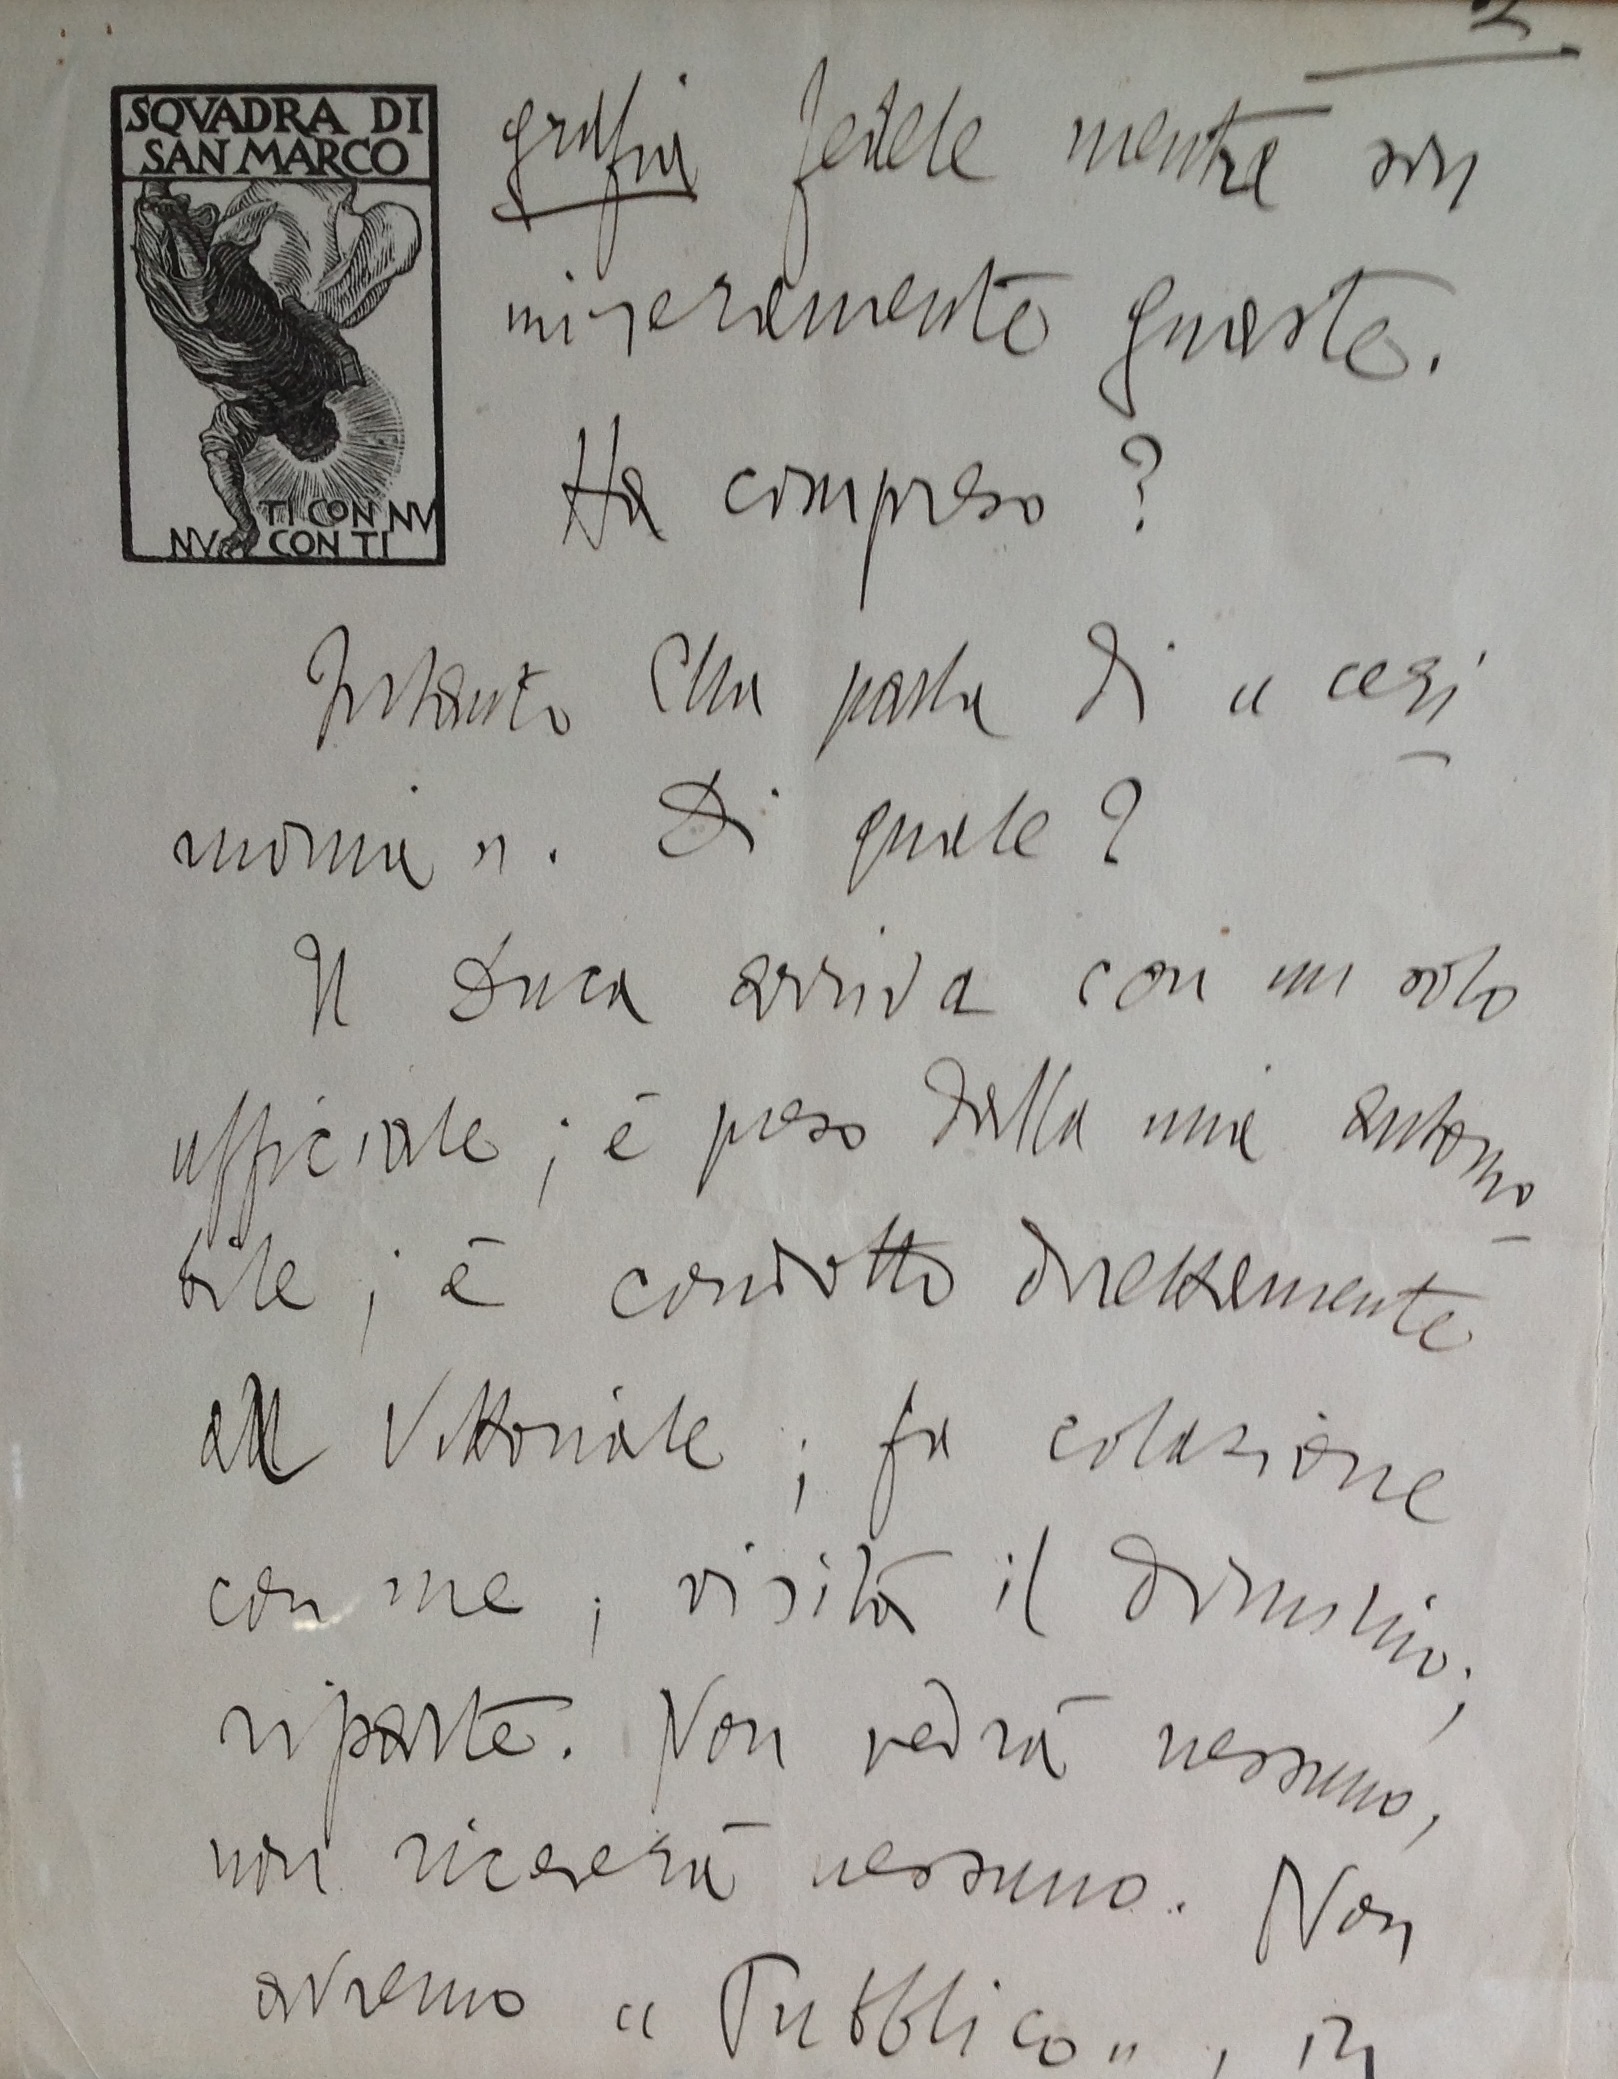 2
SQVADRA DI
SAN MARCO
TI CON NV
NV CON TI
grafia fedele mentre son
miseramente guasto.
Ha compreso?
Intanto Ella parla di "ceri
monia". Di quale?
Il Duca arriva con un solo
ufficiale; è preso dalla mia automo
bile; è condotto direttamente
al Vittoriale; fa colazione
con me; visita il
riparte. Non vedrà nessuno,
non riceverà nessuno. Non
avremo "Pubblico", in